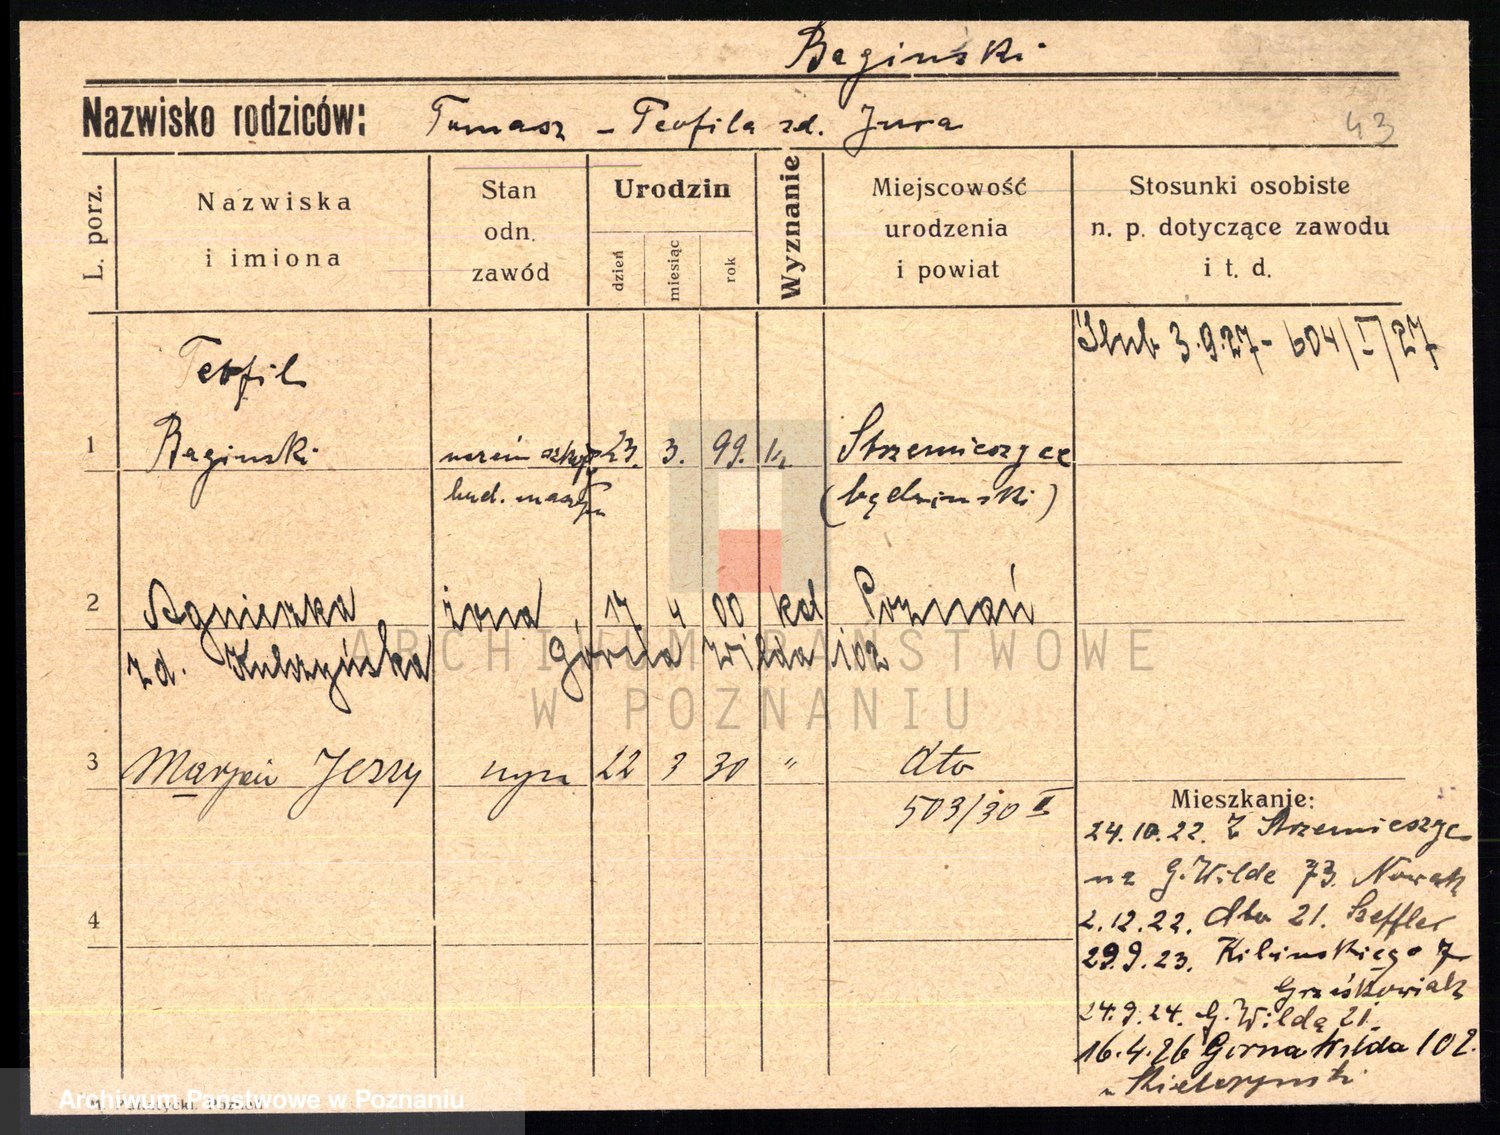 Baginski
Nazwisko rodziców: Tomasz - Teofila zd. Jura
43
L. porz.
Nazwiska
i imiona
Stan
odn.
zawód
Urodzin
dzień
miesiąc
rok
Wyznanie
Miejscowość
urodzenia
i powiat
Stosunki osobiste
n. p. dotyczące zawodu
i t. d.
Ślub 3.9.27 - 604/I/27
Teofil
1 Baginski uczeń szkoły 23. 3. 99. k. Strzemieszyce
bud. maszyn (będziński)
2 Agnieszka żona 17 4 00 kat Poznań
zd. Górna Wilda 102
3 Marjan Jerzy syn 22 3 30 " dto
503/30 II
Mieszkanie:
24.10.22. Z Strzemieszyc
na G. Wilde 73. Nowak
4
2.12.22. dto 21. Szeffler
29.9.23. Kilinskiego 7
Grześkowiak
24.9.24. G. Wilda 21.
16.4.26 Gorna Wilda 102.
ARCHIWUM PAŃSTWOWE
W POZNANIU
Archiwum Państwowe w Poznaniu